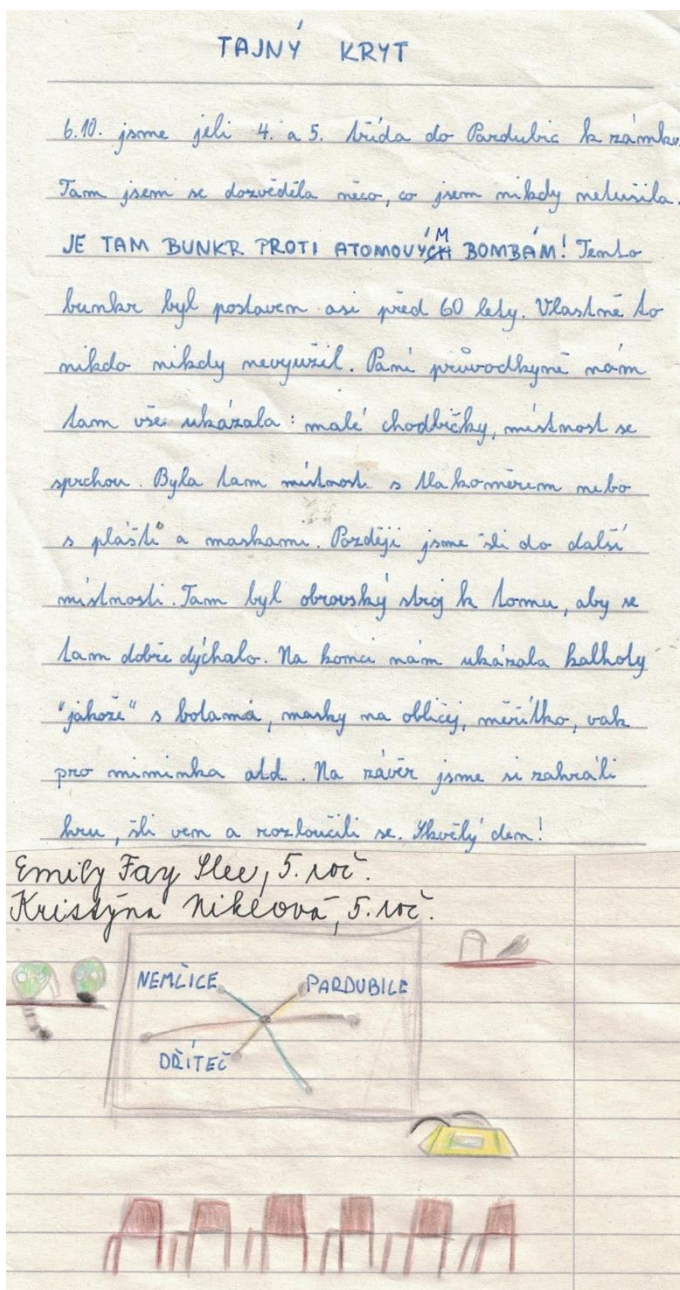 TAJNÝ KRYT
6.10. jsme jeli 4. a 5. třída do Pardubic k zámku.
Tam jsem se dozvěděla něco, co jsem nikdy netušila.
JE TAM BUNKR PROTI ATOMOVÝM BOMBÁM! Tento
bunkr byl postaven asi před 60 lety. Vlastně to
nikdo nikdy nevyužil. Paní průvodkyně nám
tam vše ukázala: malé chodbičky, místnost se
sprchou. Byla tam místnost s tlakoměrem nebo
s plášti a maskami. Později jsme šli do další
místnosti. Tam byl obrovský stroj k tomu, aby se
tam dobře dýchalo. Na konci nám ukázala kalhoty
"jakože" s botama, masky na obličej, měřítko, vak
pro miminka atd. Na závěr jsme si zahráli
hru, šli ven a rozloučili se. Skvělý den!
Emily Fay Slee, 5. roč.
Kristýna Niklová, 5. roč.
NEMČICE
PARDUBICE
DŘÍTEČ